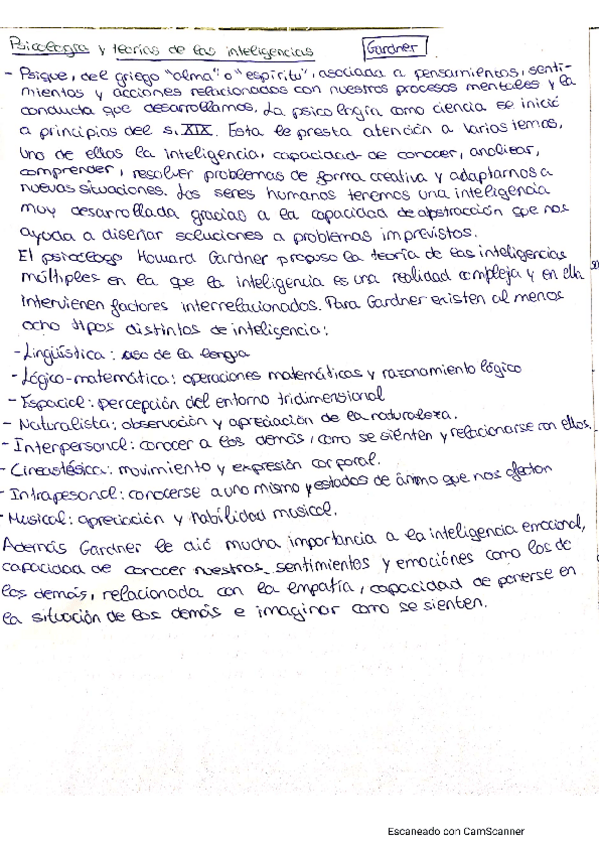 Psicología y teorías de las inteligencias Gardner
- Psique, del griego "alma" o "espíritu", asociada a pensamientos, senti-
mientos y acciones relacionados con nuestros procesos mentales y la
conducta que desarrollamos. La psicología como ciencia se inició
a principios del s. XIX. Esta le presta atención a varios temas,
uno de ellos la inteligencia, capacidad de conocer, analizar,
comprender, resolver problemas de forma creativa y adaptarnos a
nuevas situaciones. Los seres humanos tenemos una inteligencia
muy desarrollada gracias a la capacidad de abstracción que nos
ayuda a diseñar soluciones a problemas imprevistos.
El psicólogo Howard Gardner propuso la teoría de las inteligencias
múltiples en la que la inteligencia es una realidad compleja y en ella
intervienen factores interrelacionados. Para Gardner existen al menos
ocho tipos distintos de inteligencia:
- Lingüística: uso de la lengua
- Lógico-matemática: operaciones matemáticas y razonamiento lógico
- Espacial: percepción del entorno tridimensional
- Naturalista: observación y apreciación de la naturaleza.
- Interpersonal: conocer a los demás, como se sienten y relacionarse con ellos.
- Cinestésica: movimiento y expresión corporal.
- Intrapesonal: conocerse a uno mismo y estados de ánimo que nos afectan
- Musical: apreciación y habilidad musical.
Además Gardner le dió mucha importancia a la inteligencia emocional,
capacidad de conocer nuestros sentimientos y emociónes como los de
los demás, relacionada con la empatía, capacidad de ponerse en
la situación de los demás e imaginar como se sienten.
Escaneado con CamScanner